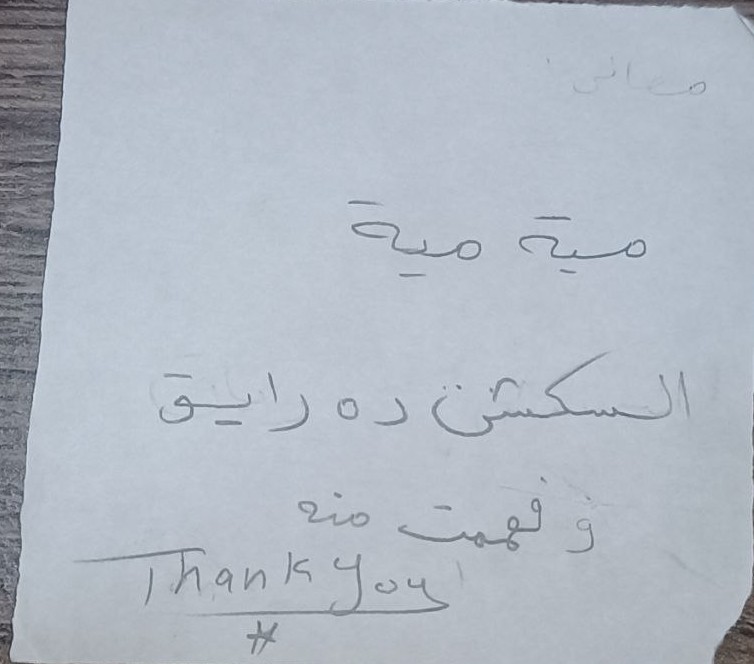 مية مية
السكشن ده رايق
و فهمت منه
Thank You
#